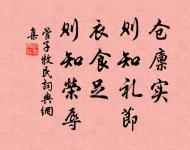 仓廪实
则知礼節
衣食足
则知榮辱
管子牧民詞典網
集